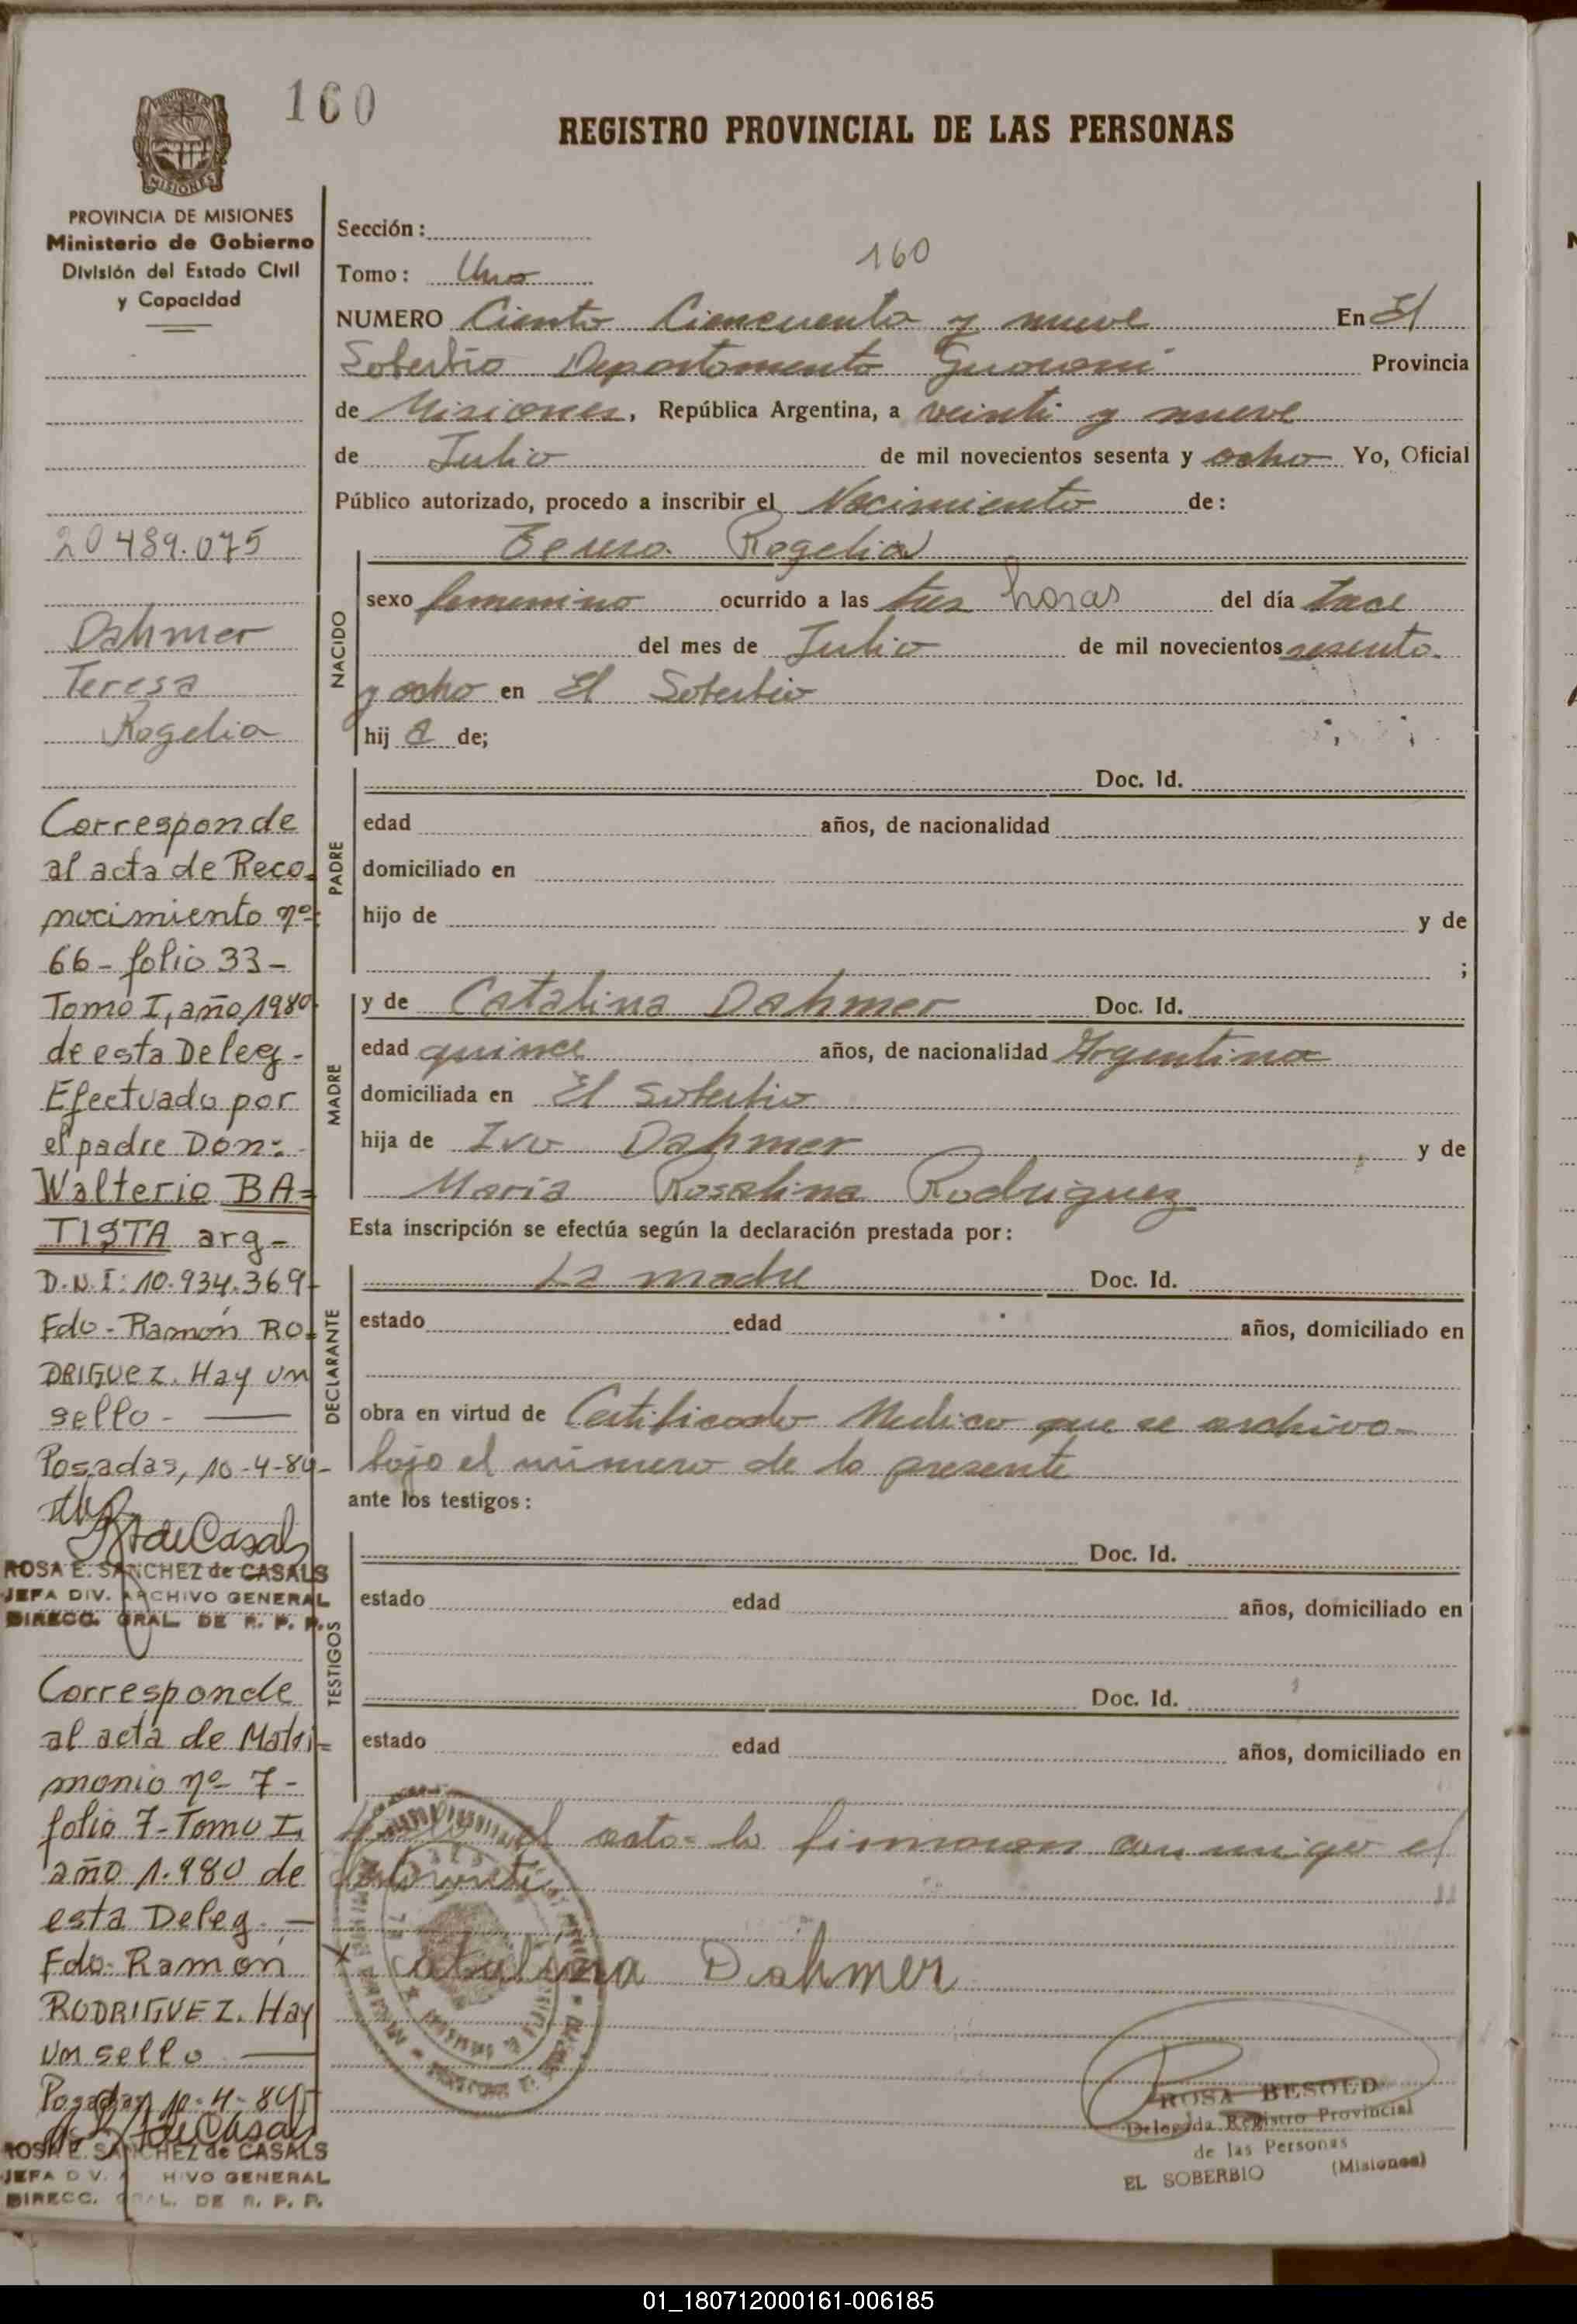 160
REGISTRO PROVINCIAL DE LAS PERSONAS
PROVINCIA DE MISIONES
Ministerio de Gobierno
División del Estado Civil
y Capacidad
20489.075
Dahmer
Teresa
Rogelia
Corresponde
al acta de Reco=
nocimiento nº:
66 - folio 33 -
Tomo I, año 1980
de esta Deleg -
Efectuado por
el padre Don:
Walterio BA=
TISTA arg -
D.N.I: 10.934.369 -
Fdo - Ramón RO=
DRIGUEZ. Hay un
sello -
Posadas, 10-4-84 -
ROSA E. SANCHEZ de CASALS
JEFA DIV. ARCHIVO GENERAL
DIRECC. GRAL. DE R. P. P.
Corresponde
al acta de Matri=
monio nº 7 -
folio 7 - Tomo I,
año 1.980 de
esta Deleg. -
Fdo - Ramón
RODRIGUEZ. Hay
un sello
Posadas, 10-4-84
ROSA E. SANCHEZ de CASALS
JEFA DIV. ARCHIVO GENERAL
DIRECC. GRAL. DE R. P. P.
Sección:
Tomo: Uno 160
NUMERO Ciento Cincuenta y nueve En El
Soberbio Departamento Guarani Provincia
de Misiones, República Argentina, a veinti y nueve
de Julio de mil novecientos sesenta y ocho Yo, Oficial
Público autorizado, procedo a inscribir el Nacimiento de:
Rogelia
NACIDO
sexo femenino ocurrido a las tres horas del día trece
del mes de Julio de mil novecientos sesenta
y ocho en El Soberbio
hij a de;
PADRE
Doc. Id.
edad años, de nacionalidad
domiciliado en
hijo de y de
;
MADRE
y de Catalina Dahmer Doc. Id.
edad quince años, de nacionalidad Argentina
domiciliada en El Soberbio
hija de Ivo Dahmer y de
Maria Rosalina Rodriguez
Esta inscripción se efectúa según la declaración prestada por:
DECLARANTE
La madre Doc. Id.
estado edad años, domiciliado en
obra en virtud de Certificado Medico que se archiva
bajo el número de la presente
ante los testigos:
TESTIGOS
Doc. Id.
estado edad años, domiciliado en
Doc. Id.
estado edad años, domiciliado en
el acta la firmaron conmigo el
Catalina Dahmer
ROSA BESOLD
Delegada Registro Provincial
de las Personas
EL SOBERBIO (Misiones)
01_180712000161-006185